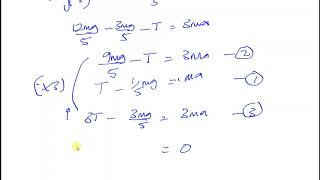 12mg/5 - 3mg/5 - T = 3ma
9mg/5 - T = 3ma — ②
(×3) T - 1/5 mg = ma — ①
3T - 3mg/5 = 3ma — ③
= 0